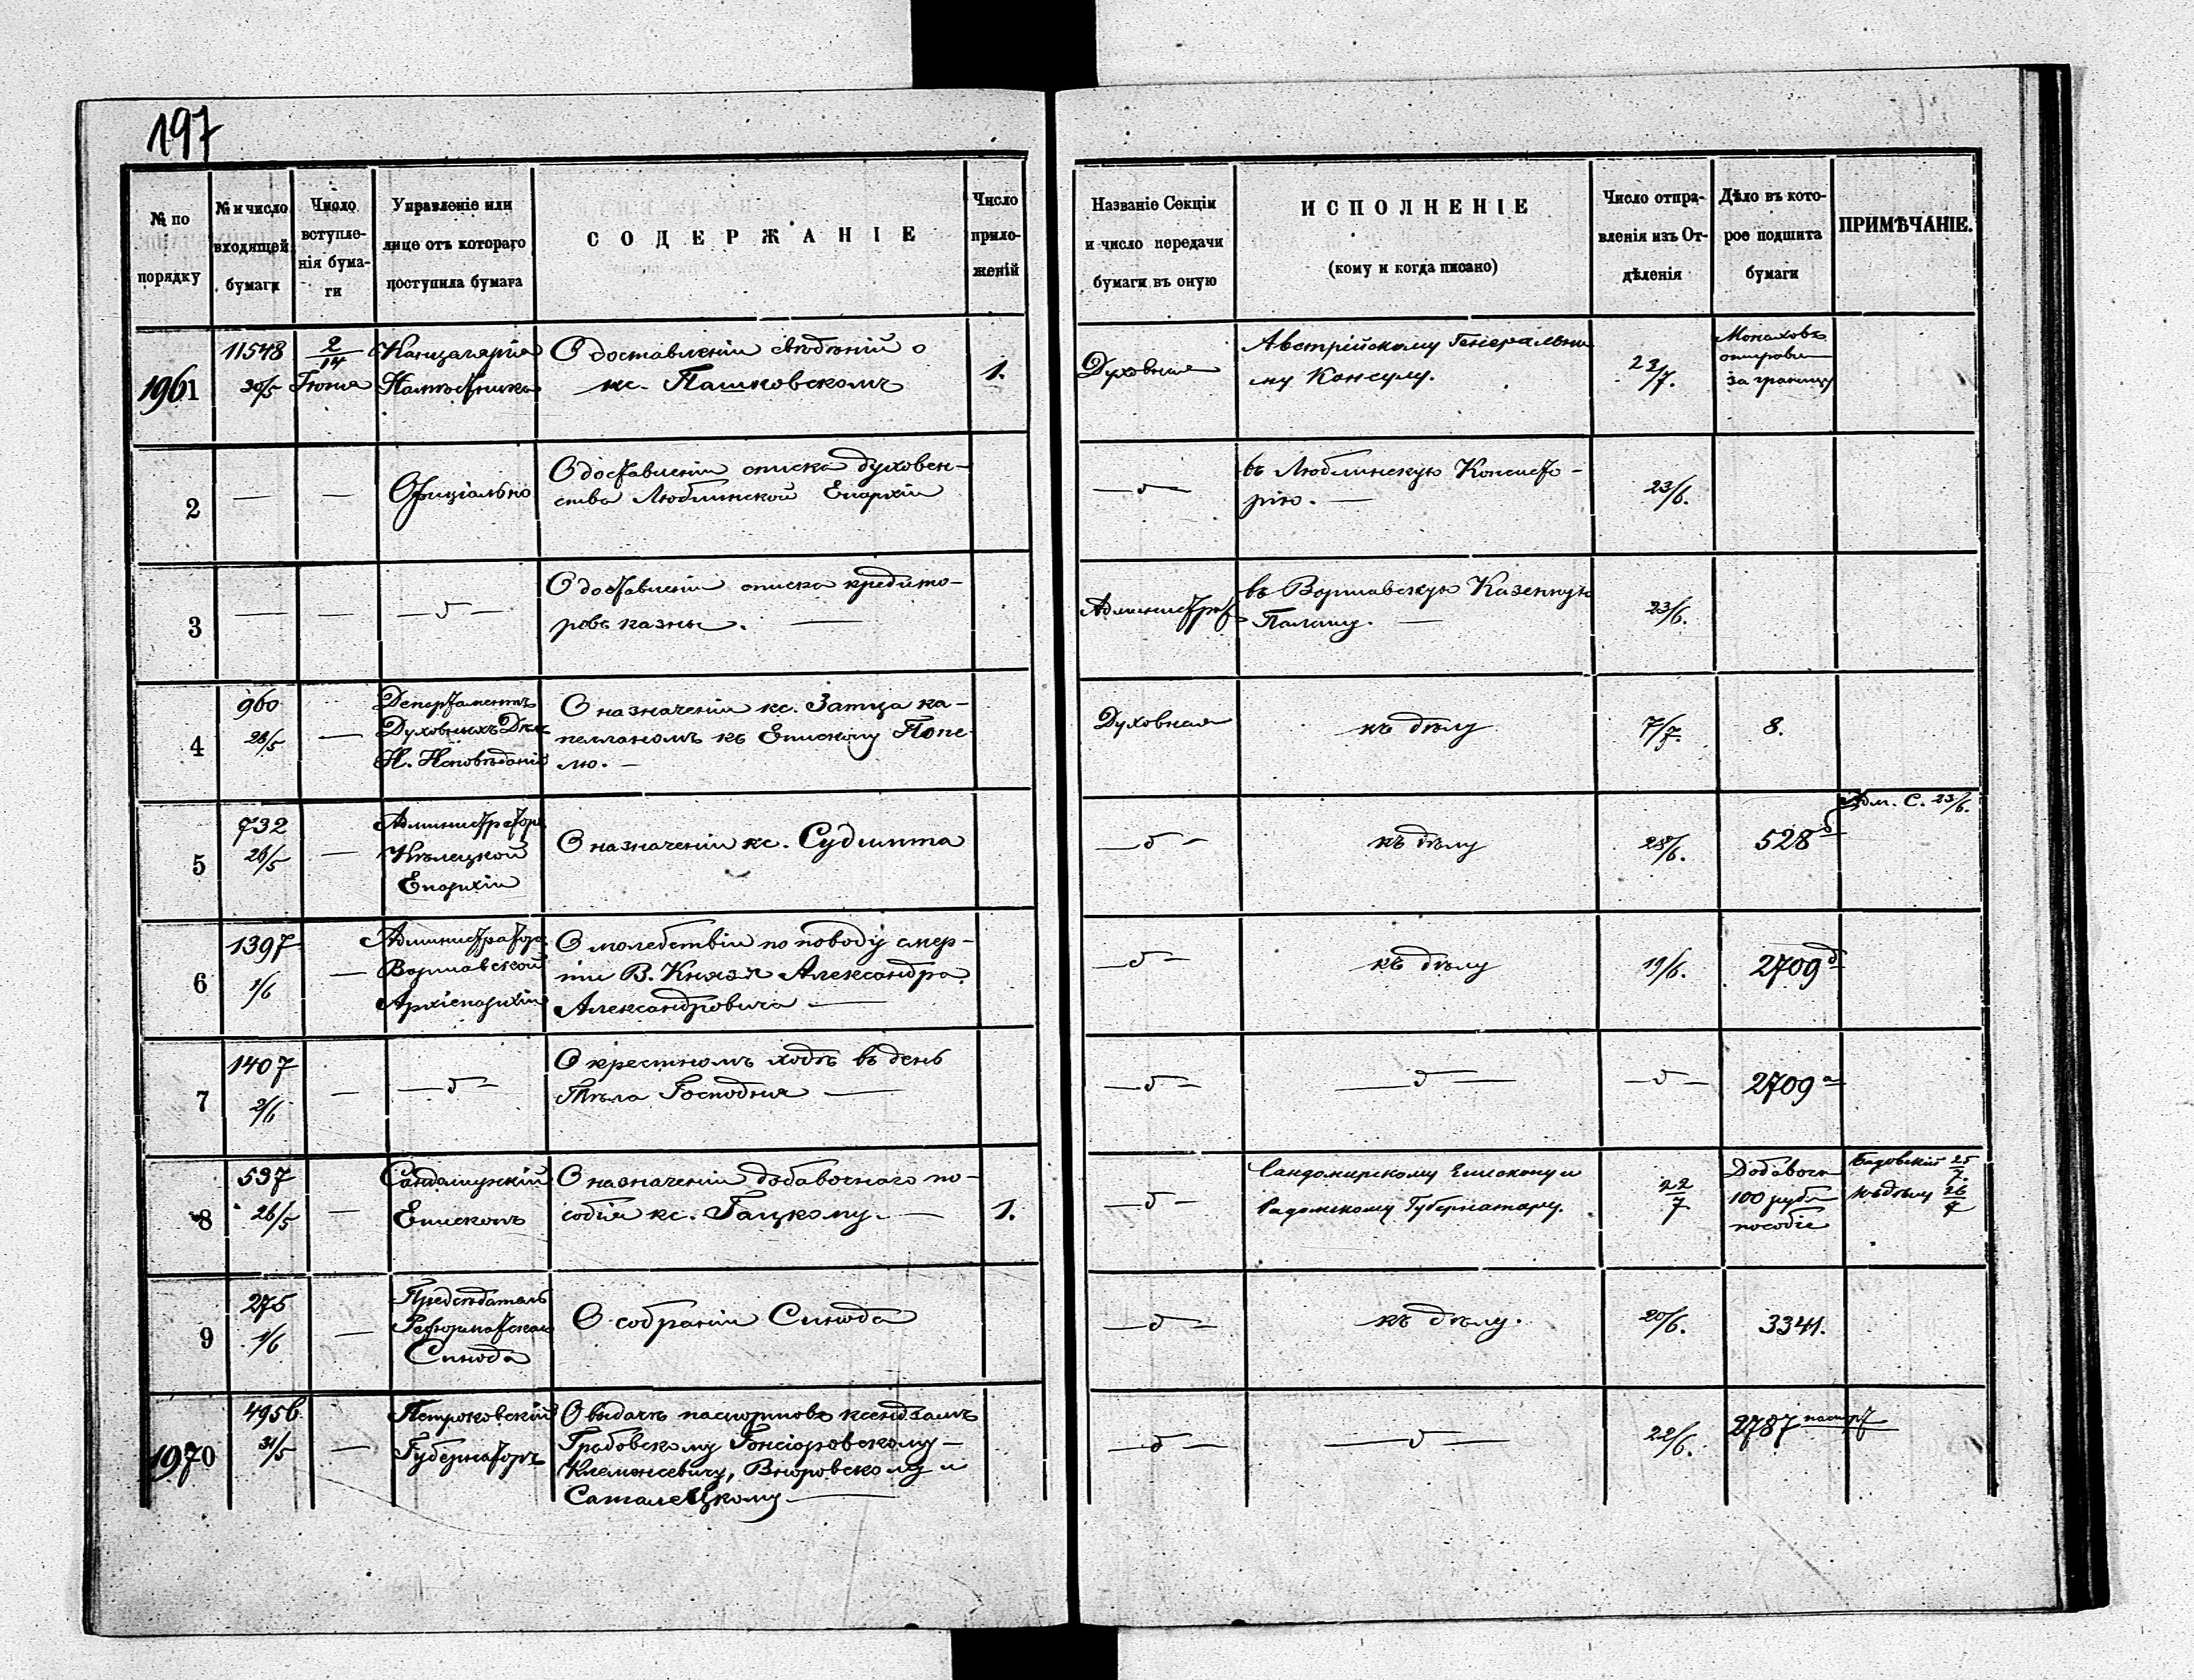 197
№ по
порядку
№ и число
входящей
бумаги
Число
вступле-
нія бума-
ги
Управленіе или
лице отъ котораго
поступила бумага
СОДЕРЖАНІЕ
Число
прило-
женій
Названіе Секціи
и число передачи
бумаги въ оную
ИСПОЛНЕНІЕ
(кому и когда писано)
Число отпра-
вленія изъ От-
дѣленія
Дѣло въ кото-
рое подшита
бумаги
ПРИМѢЧАНІЕ.
1961
11548
30/5
2/14
Іюня
Канцелярія
Намѣстника
О доставленіи свѣдѣній о
кс. Пашковскомъ
1.
Духовная
Австрійскому Генеральн
му Консулу.
23/7.
Монаховъ
отправл
за границу
2
—
—
Офиціально
О доставленіи списка духовен-
ства Люблинской Епархіи
—„—
въ Люблинскую Консисто-
рію. —
23/6.
3
—
—
—„—
О доставленіи списка кредито-
ровъ казны. —
Администрат
въ Варшавскую Казенную
Палату. —
23/6.
4
960
28/5
—
Департаментъ
Духовныхъ Дѣлъ
И. Исповѣданій
О назначеніи кс. Затца ка-
пелланомъ къ Епископу Попе-
лю. —
Духовная
къ дѣлу
7/7.
8.
5
732
26/5
—
Администраторъ
Кѣлецкой
Епархіи
О назначеніи кс. Судлита
—„—
къ дѣлу
28/6.
528
Адм. С. 23/6.
6
1397
1/6
—
Администраторъ
Варшавской
Архіепархіи
О молебствіи по поводу смер-
ти В. Князя Александра
Александровича —
—„—
къ дѣлу
19/6.
2709 д
7
1407
2/6
—
—„—
О крестномъ ходѣ въ день
Тѣла Господня —
—„—
—„—
—„—
2709 а
8
537
26/5
—
Сандомирскій
Епископъ
О назначеніи добавочнаго по-
собія кс. Гацкому. —
1.
—„—
Сандомирскому Епископу и
Радомскому Губернатору.
22/7
Добавочн
100 рубл
пособіе
25/7
Къ дѣлу 26/7
9
275
1/6
—
Предсѣдатель
Реформатскаго
Синода
О собраніи Синода
—„—
къ дѣлу.
20/6.
3341.
1970
4956
31/5
—
Петроковскій
Губернаторъ
О выдачѣ паспортовъ ксендзамъ
Грабовскому Гонсіоровскому —
Клемонсевичу, Вноровскому и
Саталецкому —
—„—
—„—
22/6.
2787 паспорт